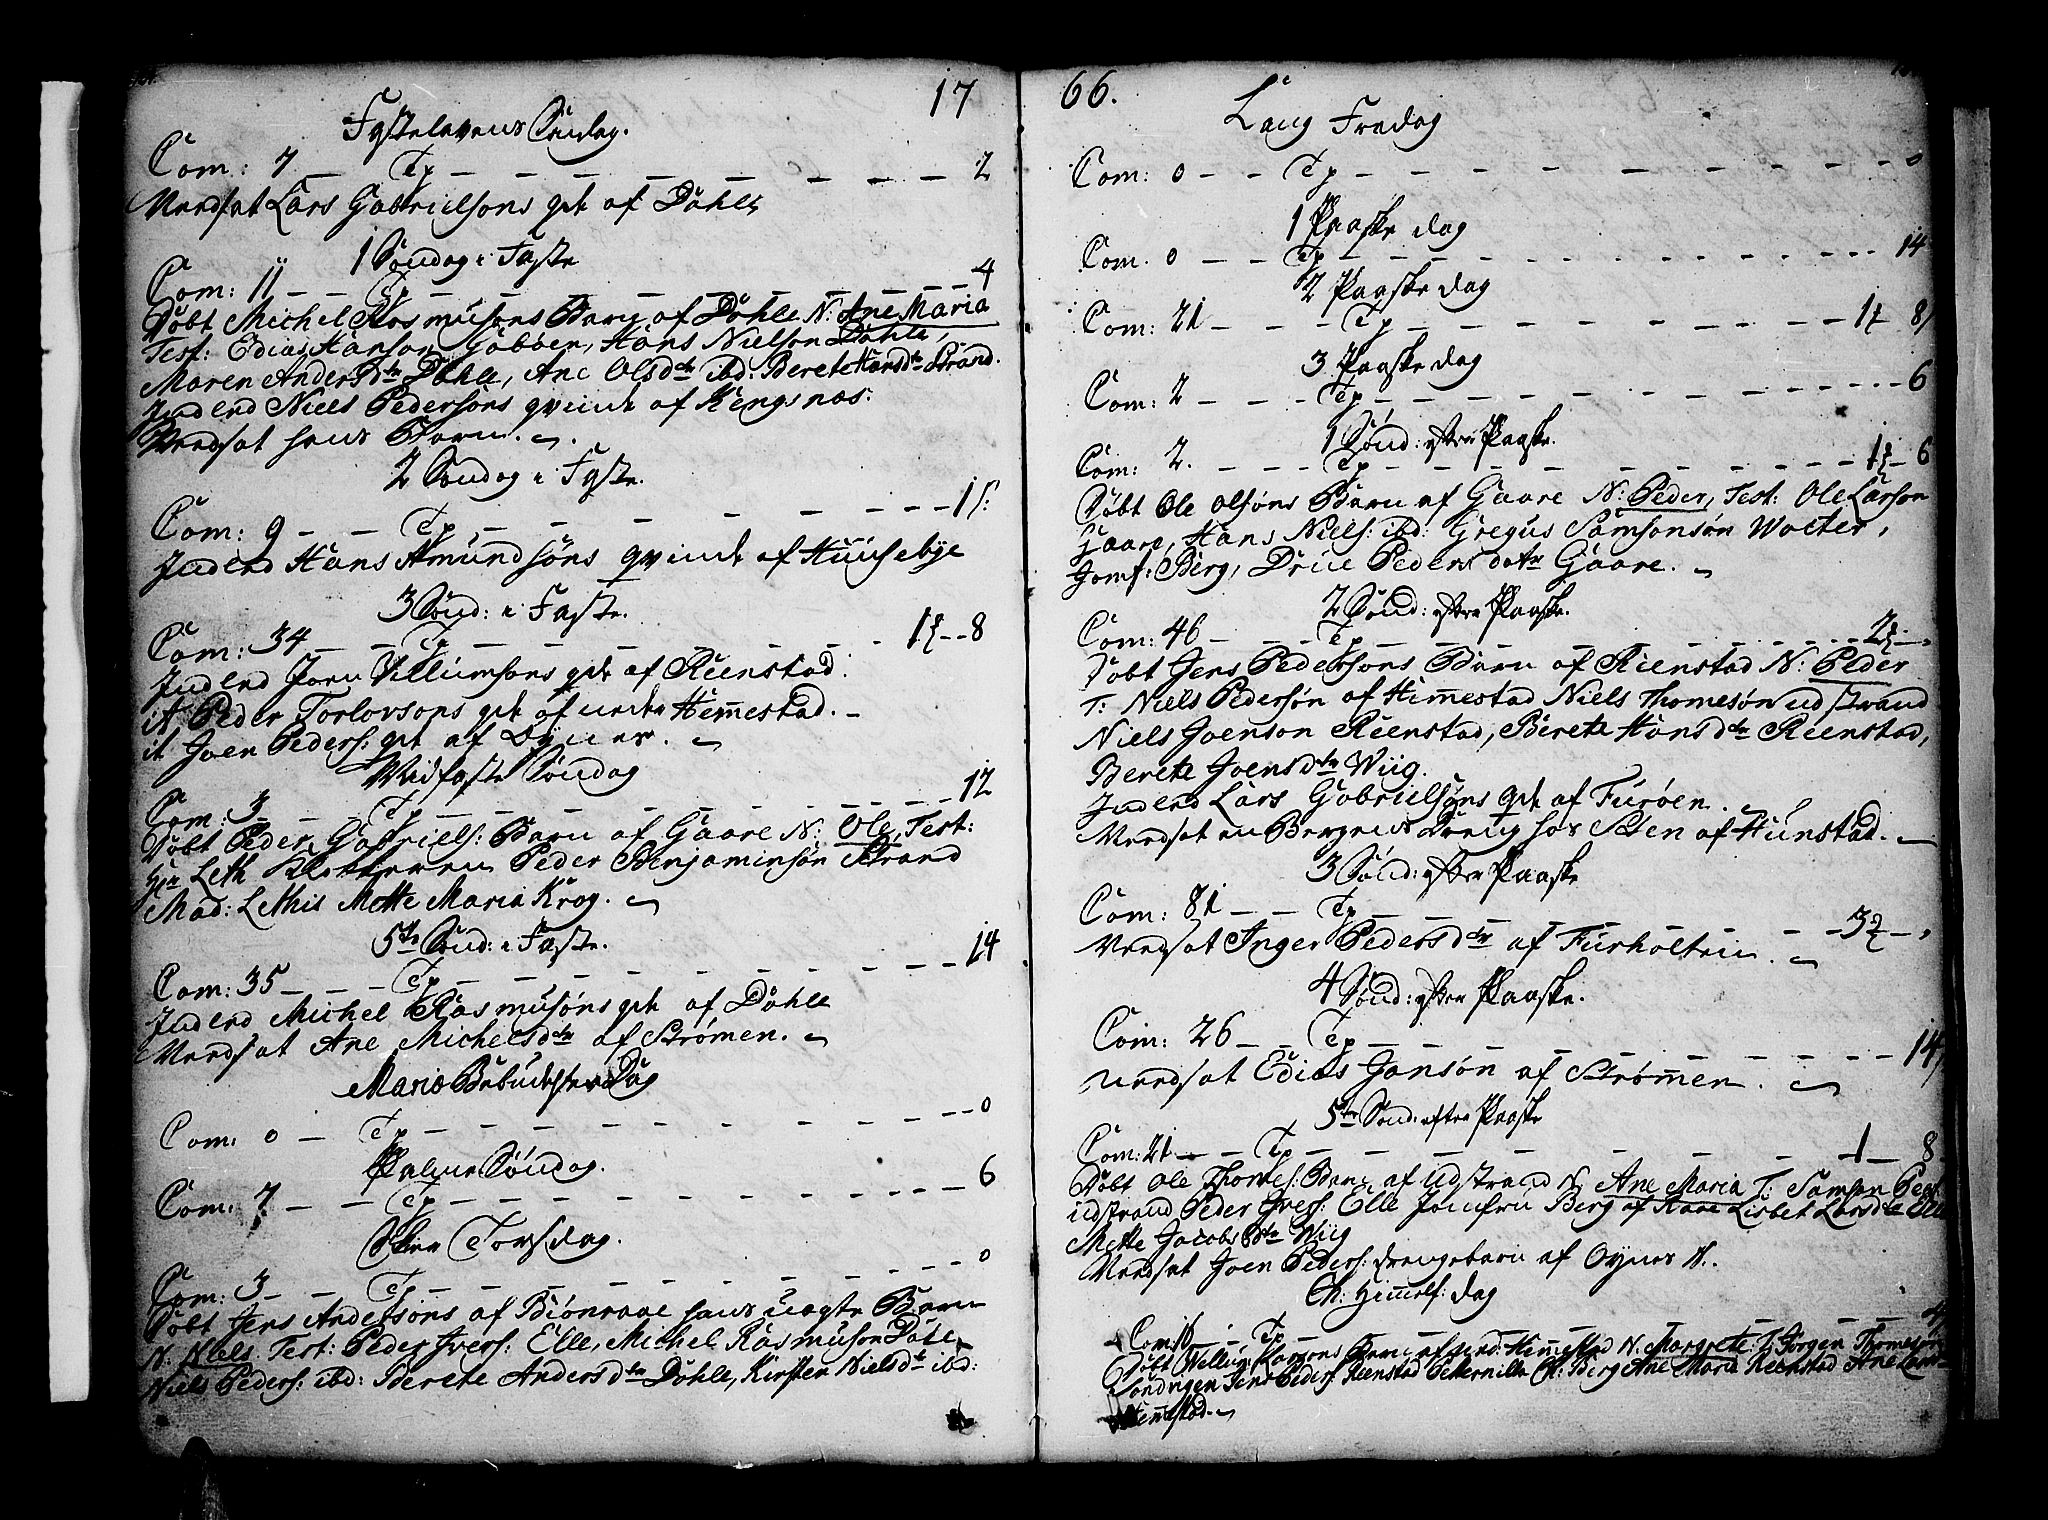 17
Fastelavens Søndag.
Com: 7 — Tp — — — — — — 2
Verdsat Lars Gabrielsøns qvt af Døhle
1 Søndag i Faste
Com: 11 — — Tp — — — — — 4
Døbt Michel Rasmusøns Barn af Døhle N: Ane Maria
Test: Edias Hanson Gobøen, Hans Nielsøn Døhle,
Maren Andersdtr Døhle, Ane Olsdtr ibd: Berete Hansdtr Strand.
Indled Niels Pedersøns qvinde af Kengsnæs:
Verdsat hans Barn.
2 Søndag i Faste.
Com: 9 — — Tp — — — — — 15:
Indled Hans Amundsøns qvinde af Huusebye
3 Sønd: i Faste.
Com: 34 — — Tp — — — — 1 — 8
Indled Joen Villumsøns qvt af Reenstad.
it Peder Torlovsøns qvt af neder Hemmestad.
it Joen Peders: qvt af Oynes.
Midfaste Søndag
Com: 3 — — Tp — — — — — 12
Døbt Peder Gabriels: Barn af Gaare N: Ole, Test:
Hr Leth Klokkeren Peder Benjaminsøn Strand
Mad: Lethis Mette Maria Krog.
5te Sønd: i Faste.
Com: 35 — — Tp — — — — — 14
Indled Michel Rasmusøns qvt af Døhle
Verdsat Ane Michelsdtr af Strømen.
Mariæ Bebudelses Dag
Com: 0 — Tp — — — — — 0
Palme Søndag.
Com: 7 — — Tp — — — — — 6
Skier Torsdag.
Com: 3 — — Tp — — — — — 0
Døbt Jens Andersøns af Biönraae hans uægte Barn
N: Niels Test: Peder Ivers: Elle, Michel Rasmusøn Døle
Niels Peders: ibd: Berete Andersdtr Døhle, Kirsten Nielsdtr ibd:
66.
Lang Fredag
Com: 0 — — Tp — — — — — 0
1 Paaske dag
Com. 0 — — Tp — — — — — 14
2 Paaske dag
Com: 21 — — Tp — — — — 1 — 8
3 Paaske dag
Com: 2 — — Tp — — — — — 6
1 Sønd: efter Paaske.
Com: 2. — — Tp — — — — 1 — 6
Døbt Ole Olsøns Barn af Gaare N: Peder, Test: Ole Larsøn
Gaare, Hans Niels: ibd: Gregus Samsonsøn Wolter,
Jomf: Berg, Drue Peders datr Gaare.
2 Sønd: efter Paaske.
Com: 46 — — Tp — — — — 2 —
Døbt Jens Pedersøns Barn af Rienstad N: Peder
T: Niels Pedersøn af Himestad Niels Thomesøn udstrand
Niels Joenson Reenstad, Berete Hansdtr Reenstad,
Berete Joensdtr Wiig.
Indled Lars Gabrielsøns qvt af Furøen.
Verdsat en Bergens Dreng hos Sten af Hunstad.
3 Sønd: efter Paaske
Com: 81 — — Tp — — — — 3 —
Verdsat Inger Pedersdtr af Furholten.
4 Sønd: efter Paaske.
Com: 26 — — Tp — — — — — 14
Verdsat Edias Jansøn af Strømmen.
5te Sønd: efter Paaske
Com: 21 — — Tp — — — — 1 — 8
Døbt Ole Thomes: Barn af Udstrand N. Ane Maria T: Samson Peders
udstrand Peder Ivers: Elle Jomfru Berg af Kaae Lisbet Larsdtr Elle
Mette Jacobsdtr Wiig
Verdsat Joen Peders: drengebarn af Oynes
Ch: Himelf: Dag
Com: — Tp — — — — — 4
Døbt Wellum Larsøns Barn af Hemmestad N. Margrete: T: Jørgen Thomesøn
Sandvigen Jens Peders Reenstad Petternille Ch: Berg Ane Maria Reenstad Ane Lars
Hemmestad.